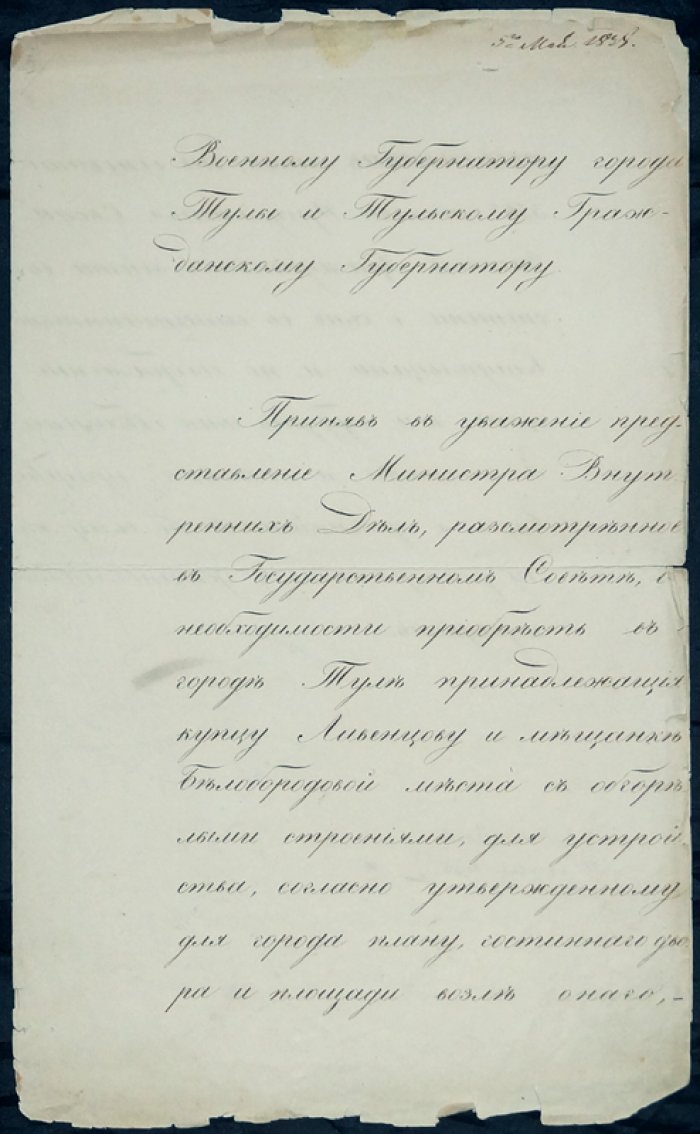 5го Мая 1838.
Военному Губернатору города
Тулы и Тульскому Граж-
данскому Губернатору.
Принявъ въ уваженіе пред-
ставленіе Министра Внут
реннихъ Дѣлъ, разсмотрѣнное
въ Государственномъ Совѣтѣ, о
необходимости пріобрѣсть въ
городѣ Тулѣ принадлежащія
купцу Ливенцову и мѣщанкѣ
Бѣлобородовой мѣста съ обгорѣ
лыми строеніями, для устрой
ства, согласно утвержденному
для города плану, гостиннаго дво
ра и площади возлѣ онаго,-